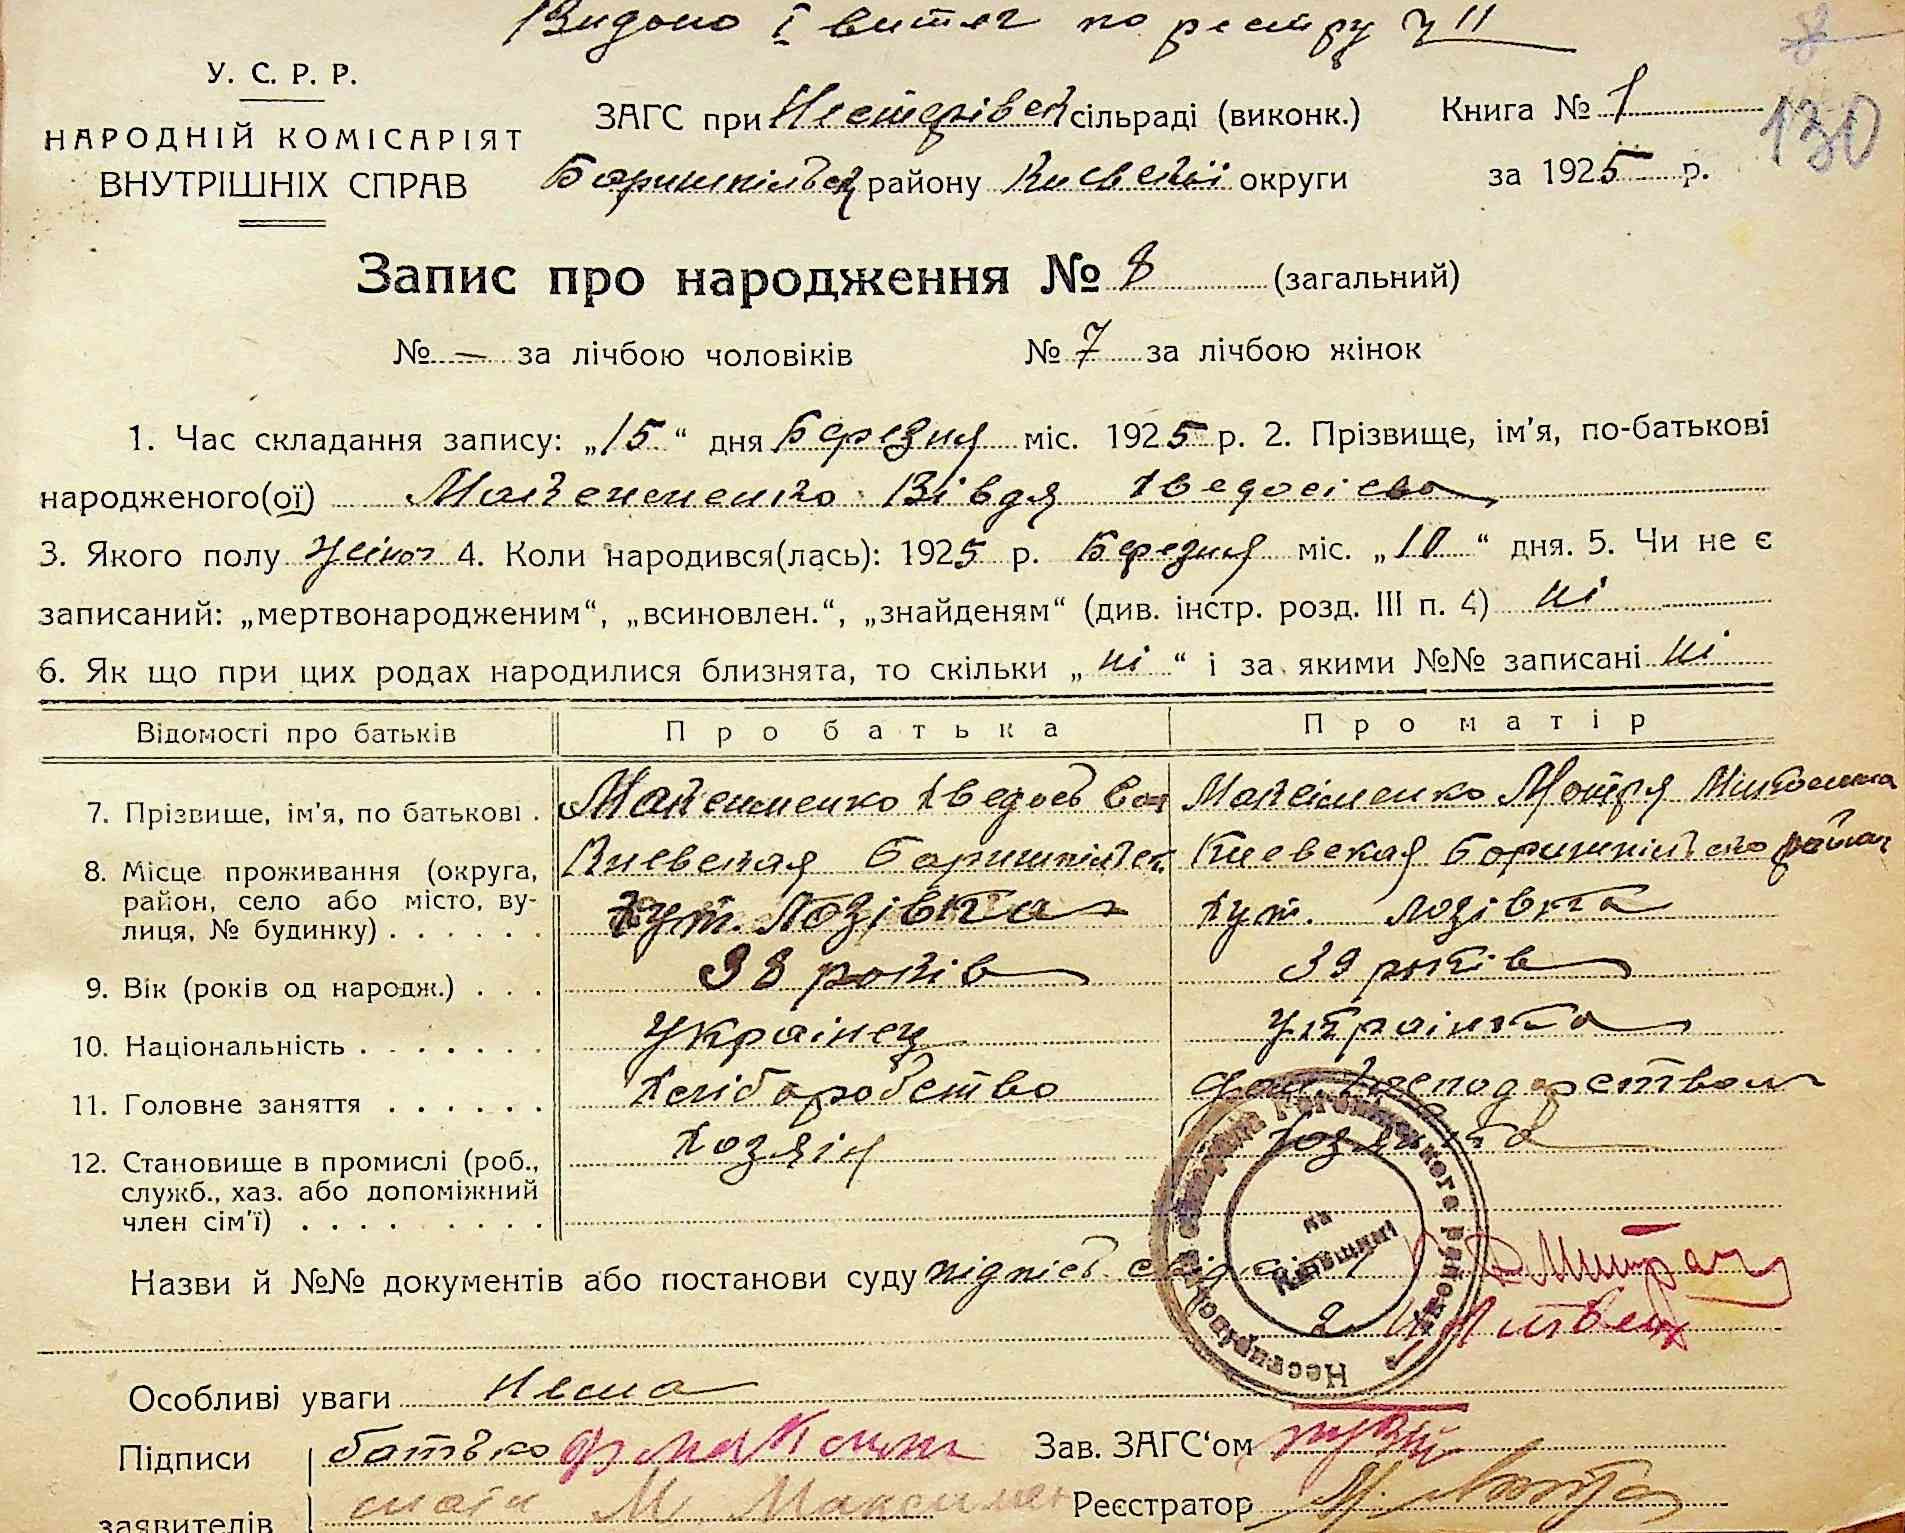 Видано І витяг по реєстру ч 11
8
130
У. С. Р. Р.
НАРОДНІЙ КОМІСАРІЯТ
ВНУТРІШНІХ СПРАВ
ЗАГС при сільраді (виконк.)
Книга № 1
Боришпільск району Києвскої округи
за 1925 р.
Запис про народження № 8 (загальний)
№ — за лічбою чоловіків № 7 за лічбою жінок
1. Час складання запису: „15“ дня Березня міс. 1925 р. 2. Прізвище, ім'я, по-батькові
народженого(ої) Вівдя Хведосієва
3. Якого полу жіноч 4. Коли народився(лась): 1925 р. Березня міс. „10“ дня. 5. Чи не є
записаний: „мертвонародженим“, „всиновлен.“, „знайденям“ (див. інстр. розд. III п. 4) ні
6. Як що при цих родах народилися близнята, то скільки „ні“ і за якими №№ записані ні
Відомості про батьків Про батька Про матір
7. Прізвище, ім'я, по батькові . Хведось Максіменко Мотря
8. Місце проживання (округа, район, село або місто, вулиця, № будинку) . . . . . . Киевская Боришпільск Киевская Боришпільско район
хут. Лозівка хут. Лозівка
9. Вік (років од народж.) . . . 38 років 39 років
10. Національність . . . . . . . Українец Українка
11. Головне заняття . . . . . . Хліборобство господарством
12. Становище в промислі (роб., служб., хаз. або допоміжний член сім'ї) . . . . . . . . . Хозяін Хозяйка
Назви й №№ документів або постанови суду підпісь
2.
на Київщині
району
Особливі уваги Нема
Підписи батько
Зав. ЗАГС'ом
заявителів мати М Максимен
Реєстратор